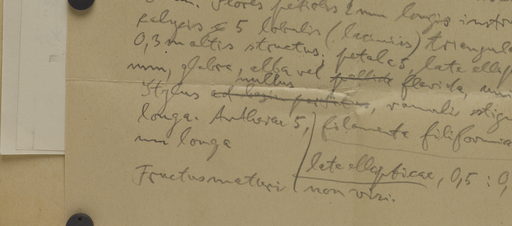 Flores petiolis 2 mm longis instr
calycis e 5 lobulis (laciniis) triangula
0,3 m altis structus; petala 5, late ellip
mm, glabra, alba vel pallide flavida,
Stylus nullus ad basin ramulis stigm
longa. Antherae 5, filamenta filiformia
mm longa
late ellipticae, 0,5 : 0,
Fructus maturi non vivi.